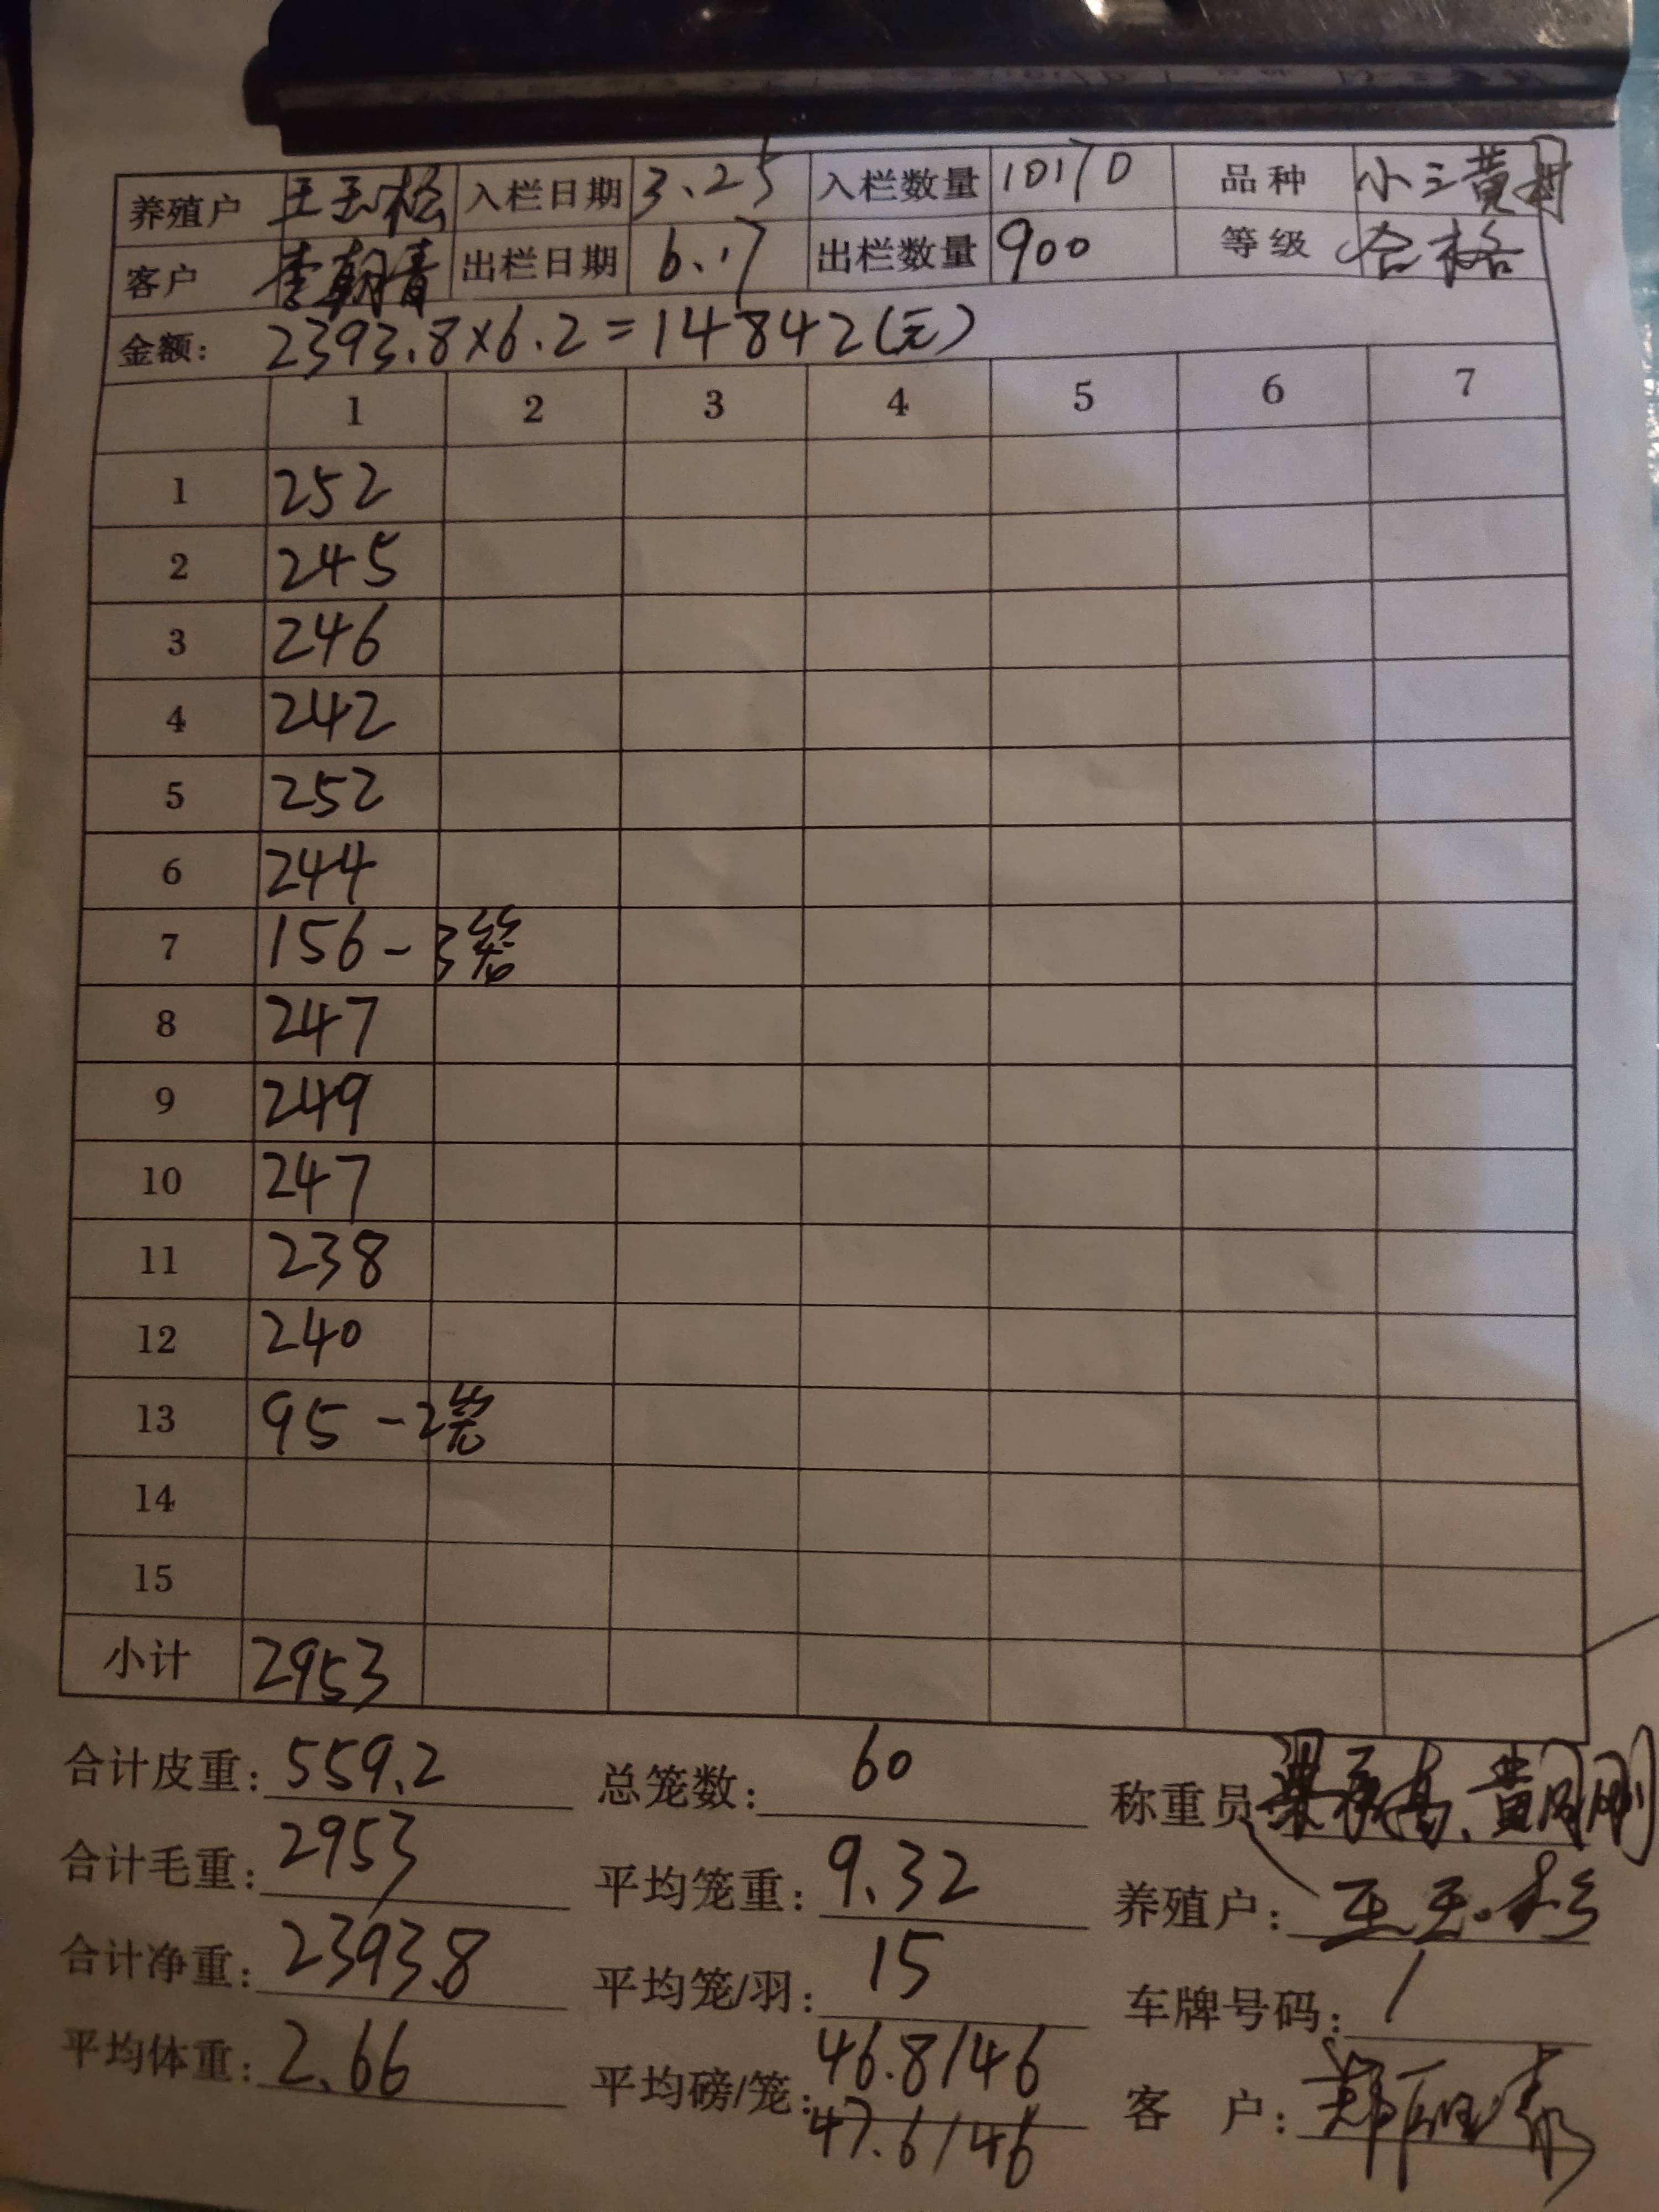 养殖户 王玉松 入栏日期 3.25 入栏数量 10170 品种 小三黄
客户 李朝青 出栏日期 6.17 出栏数量 900 等级 合格
金额: 2393.8×6.2=14842(元)
1 2 3 4 5 6 7
1 252
2 245
3 246
4 242
5 252
6 244
7 156-3笼
8 247
9 249
10 247
11 238
12 240
13 95-2笼
14
15
小计 2953
合计皮重: 559.2 总笼数: 60 称重员
合计毛重: 2953 平均笼重: 9.32 养殖户:
合计净重: 2393.8 平均笼/羽: 15 车牌号码: /
平均体重: 2.66 平均磅/笼: 46.8/46 客 户:
47.6/46